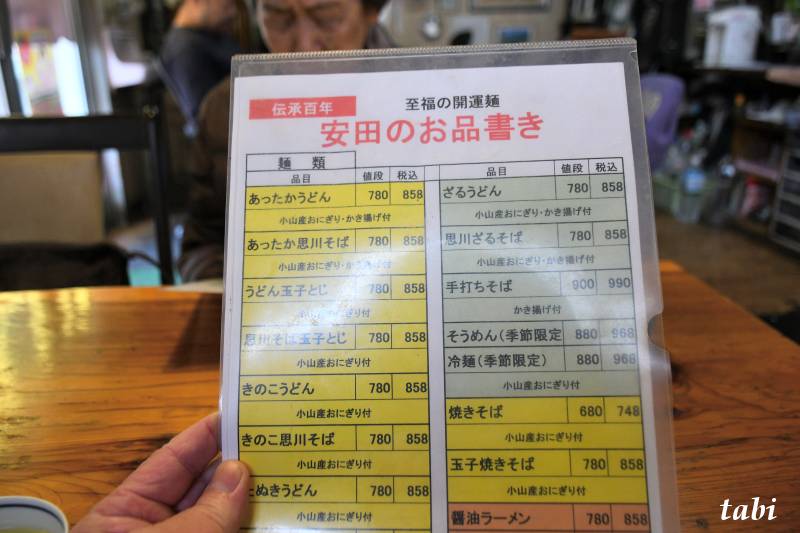 伝承百年
至福の開運麺
安田のお品書き
麺 類
品目 値段 税込
あったかうどん 780 858
小山産おにぎり・かき揚げ付
あったか思川そば 780 858
小山産おにぎり・かき揚げ付
うどん玉子とじ 780 858
小山産おにぎり付
思川そば玉子とじ 780 858
小山産おにぎり付
きのこうどん 780 858
小山産おにぎり付
きのこ思川そば 780 858
小山産おにぎり付
たぬきうどん 780 858
小山産おにぎり付
品目 値段 税込
ざるうどん 780 858
小山産おにぎり・かき揚げ付
思川ざるそば 780 858
小山産おにぎり・かき揚げ付
手打ちそば 900 990
かき揚げ付
そうめん(季節限定 880 968
冷麺(季節限定) 880 968
小山産おにぎり付
焼きそば 680 748
小山産おにぎり付
玉子焼きそば 780 858
小山産おにぎり付
醤油ラーメン 780 858
tabi